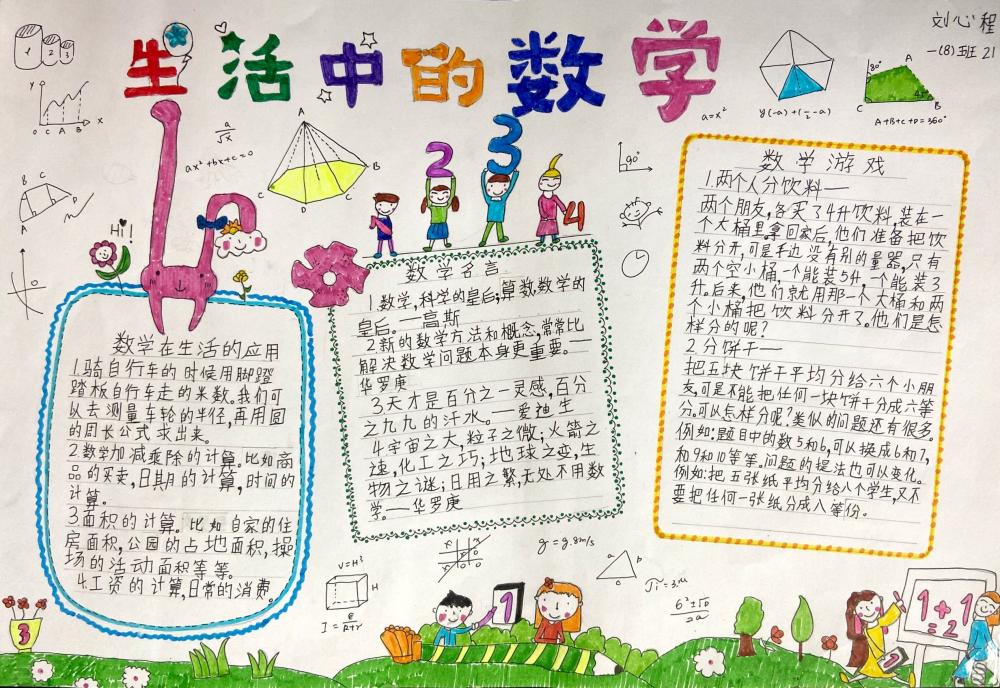 生活中的数学
刘心程
一(8)班 21
数学在生活的应用
1.骑自行车的时候用脚蹬
踏板自行车走的米数。我们可
以去测量车轮的半径,再用圆
的周长公式求出来。
2数学加减乘除的计算。比如商
品的买卖,日期的计算,时间的
计算。
3面积的计算。比如自家的住
房面积,公园的占地面积,操
场的活动面积等等。
4.工资的计算,日常的消费。
数学名言
1.数学,科学的皇后;算数,数学的
皇后。——高斯
2新的数学方法和概念,常常比
解决数学问题本身更重要。——
华罗庚
3天才是百分之一灵感,百分
之九九的汗水。——爱迪生
4宇宙之大,粒子之微;火箭之
速,化工之巧;地球之变,生
物之谜;日用之繁,无处不用数
学。——华罗庚
数学游戏
1.两个人分饮料—
两个朋友,各买了4升饮料,装在一
个大桶里,拿回家后,他们准备把饮
料分开,可是手边没有别的量器,只有
两个空小桶,一个能装5升,一个能装3
升。后来,他们就用那一个大桶和两
个小桶把饮料分开了。他们是怎
样分的呢?
2分饼干—
把五块饼干平均分给六个小朋
友,可是不能把任何一块饼干分成六等
分。可以怎样分呢?类似的问题还有很多。
例如:题目中的数5和6,可以换成6和7,
和9和10等等。问题的提法也可以变化。
例如:把五张纸平均分给八个学生,又不
要把任何一张纸分成八等份。
Hi!
a/√x
ax²+bx+c=0
a=x²
A+B+C+D=360°
90°
2
3
1
4
V=H³
g=9.8m/s
1
1+1
=2
3